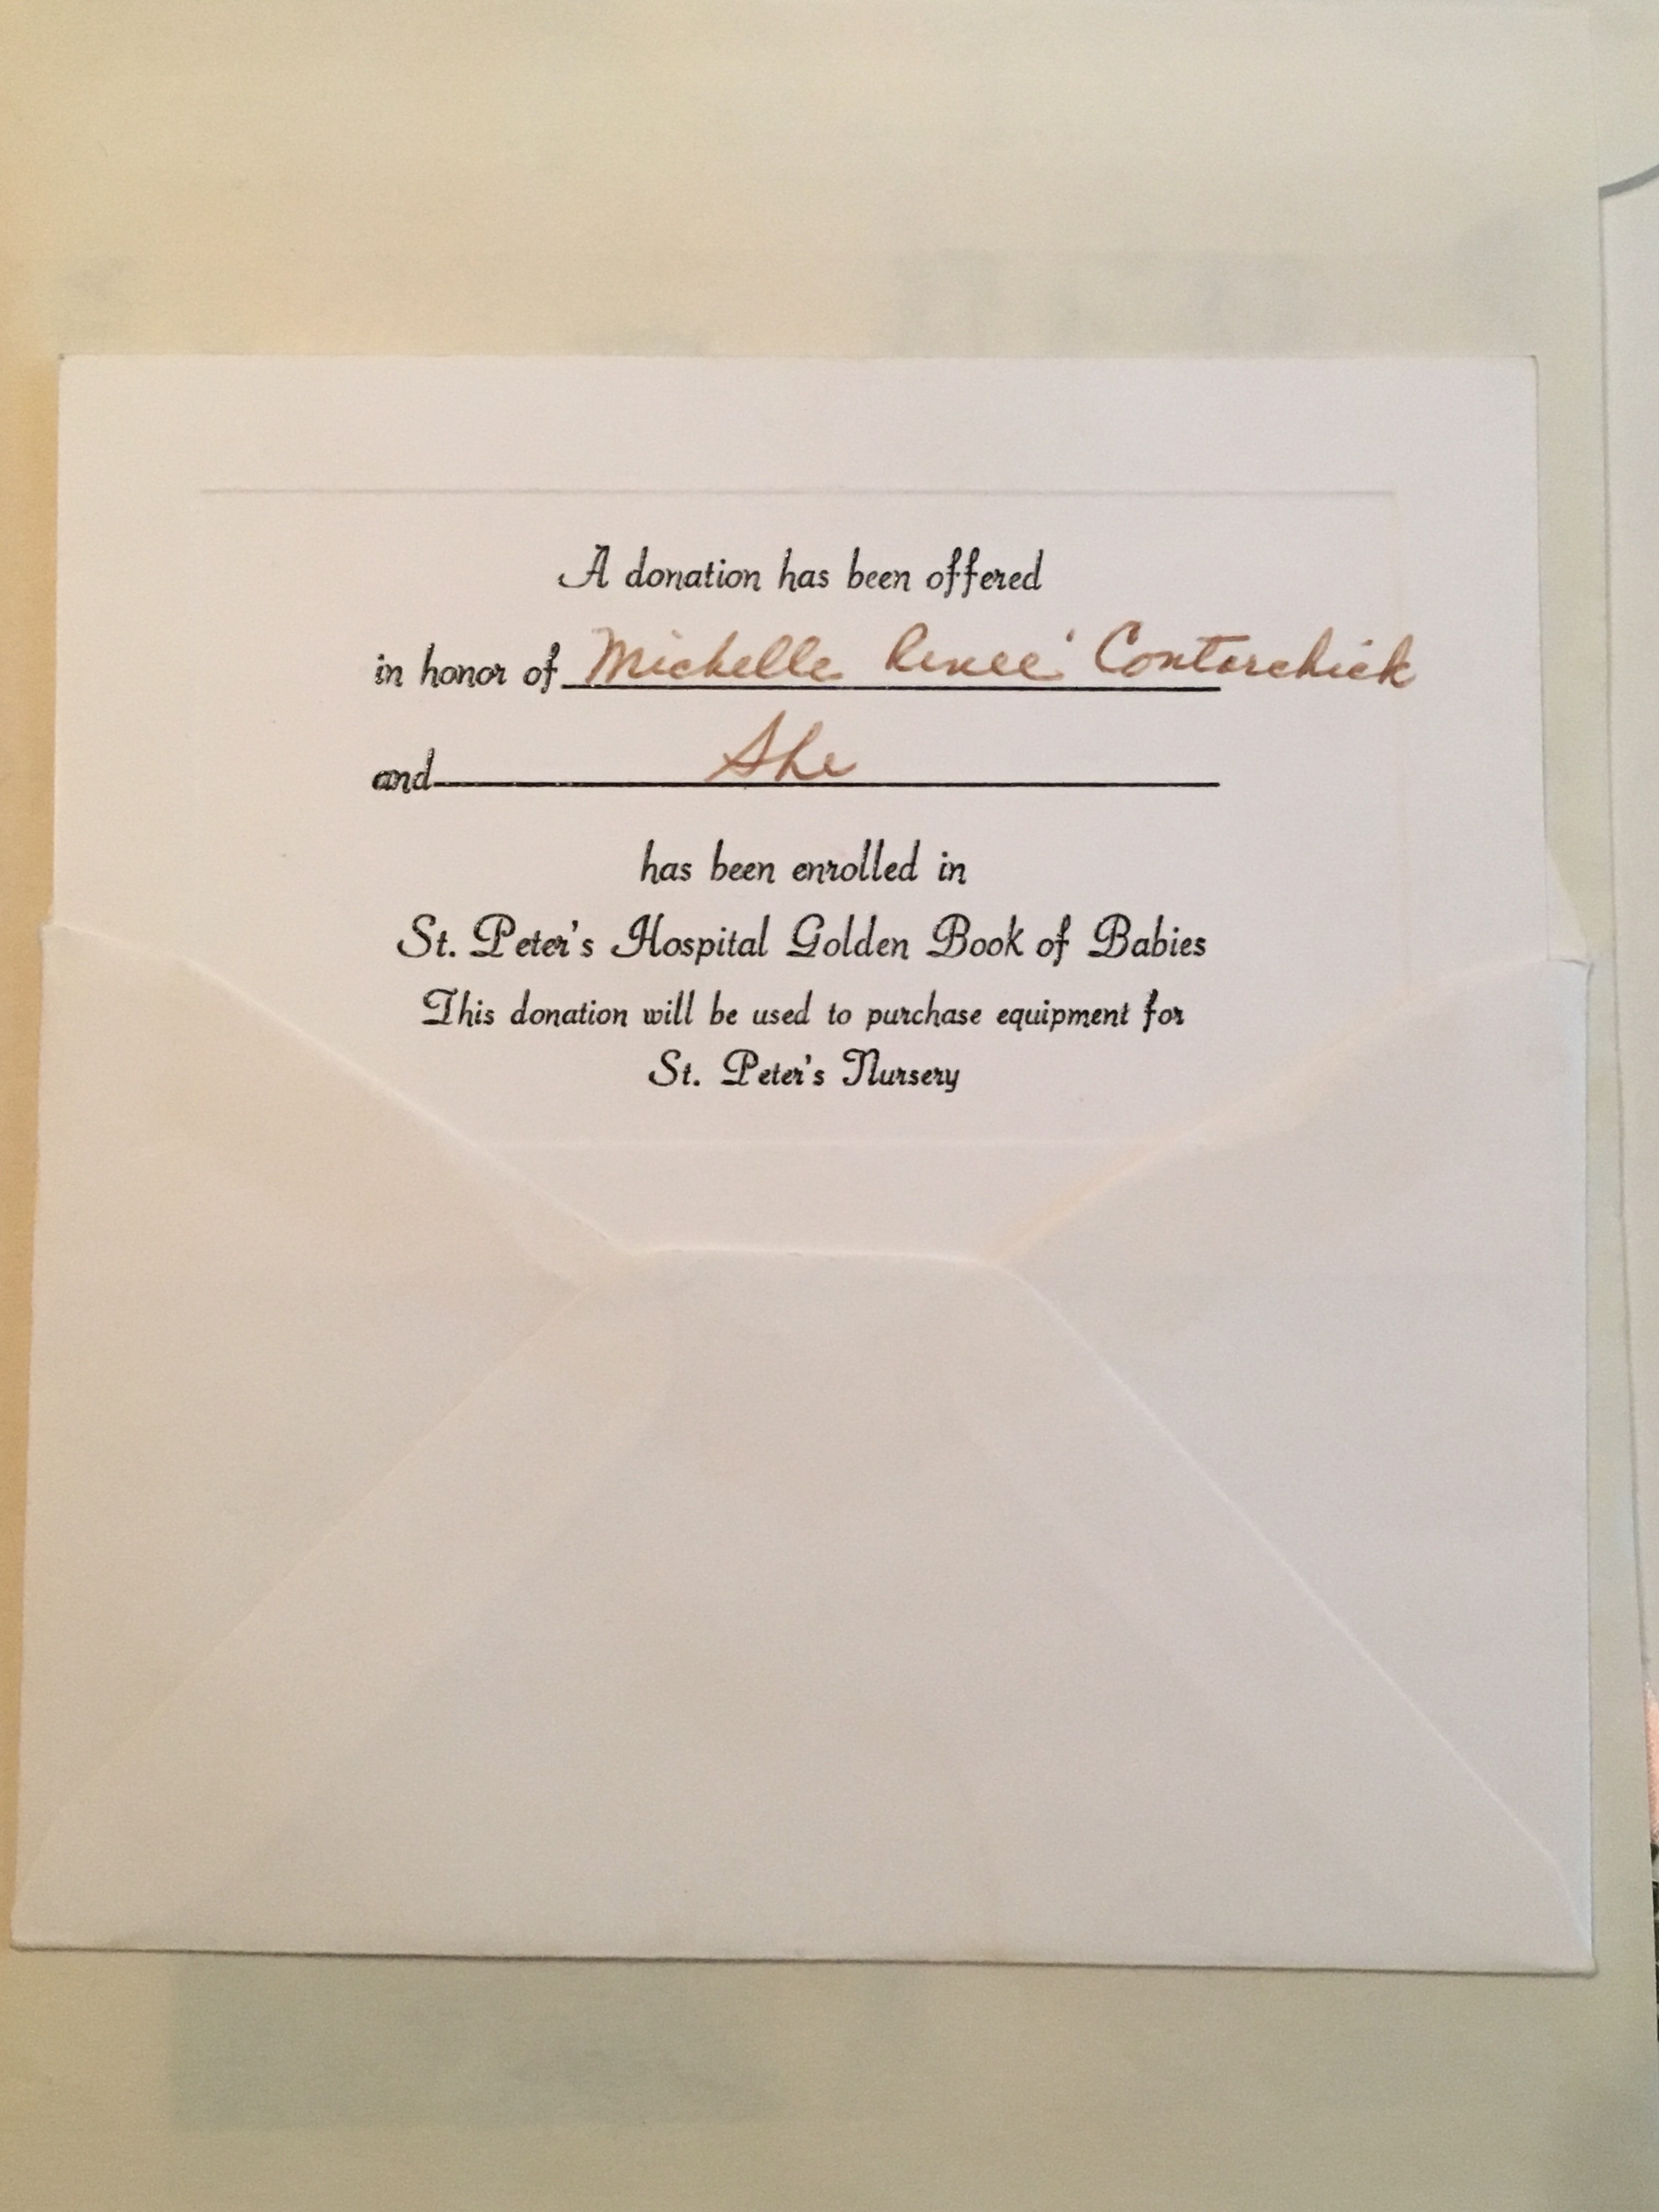 A donation has been offered
in honor of Michelle Renee' Contorchick
and She
has been enrolled in
St. Peter's Hospital Golden Book of Babies
This donation will be used to purchase equipment for
St. Peter's Nursery